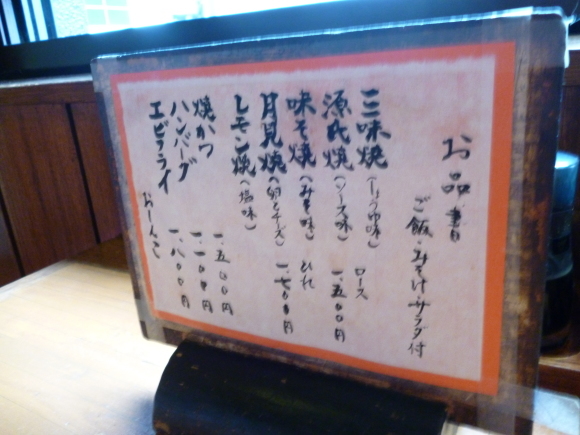 お品書
ご飯・みそ汁・サラダ付
三味焼(しょうゆ味)
源氏焼(ソース味)
味そ焼(みそ味)
月見焼(卵とチーズ)
レモン焼(塩味)
ロース 一.五00円
ひれ 一.七00円
焼かつ 一.五00円
ハンバーグ 一.一00円
エビフライ 一.八00円